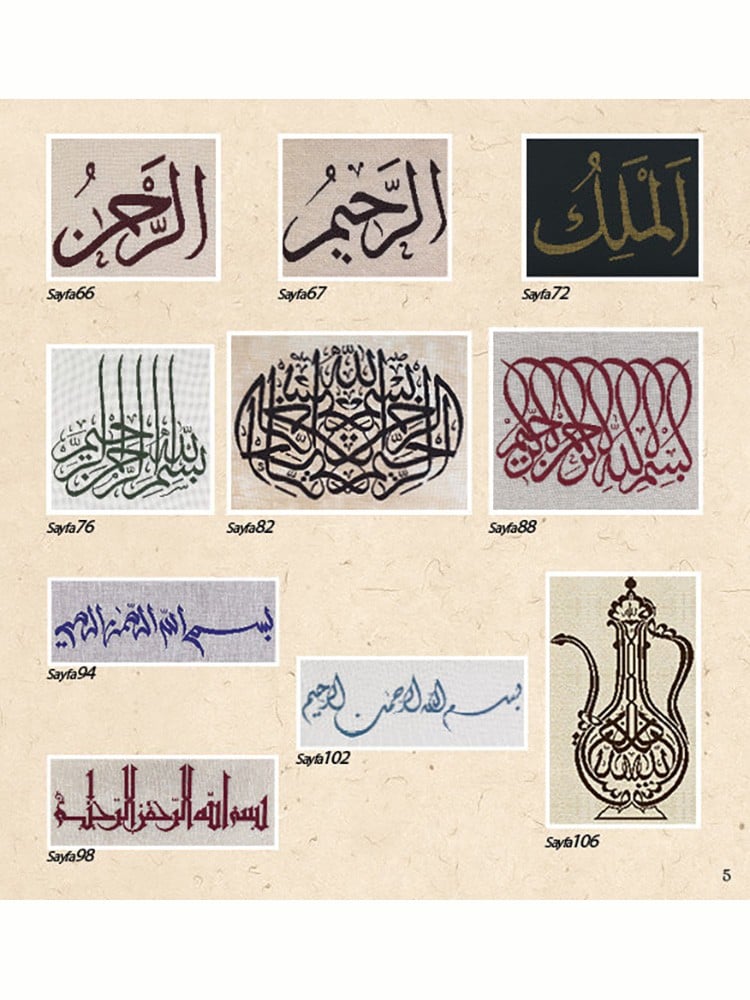 الرَّحْمنُ
Sayfa66
الرَّحِيمُ
Sayfa67
اَلْمَلِكُ
Sayfa72
بسم الله الرحمن الرحيم
Sayfa76
بسم الله الرحمن الرحيم
Sayfa82
بسم الله الرحمن الرحيم
Sayfa88
بسم الله الرحمن الرحيم
Sayfa94
بسم الله الرحمن الرحيم
Sayfa102
بسم الله الرحمن الرحيم
Sayfa98
Sayfa106
5